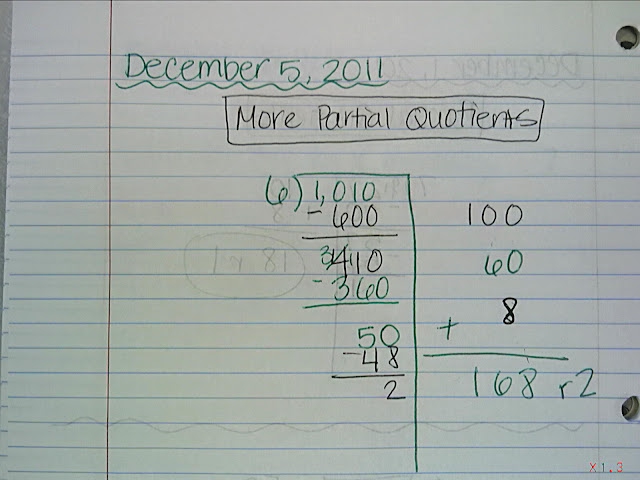 December 5, 2011
More Partial Quotients
6) 1,010
- 600 100
3 1
410 60
- 360 8
50 +
- 48
2 168 r2
18 r 1
X1.3